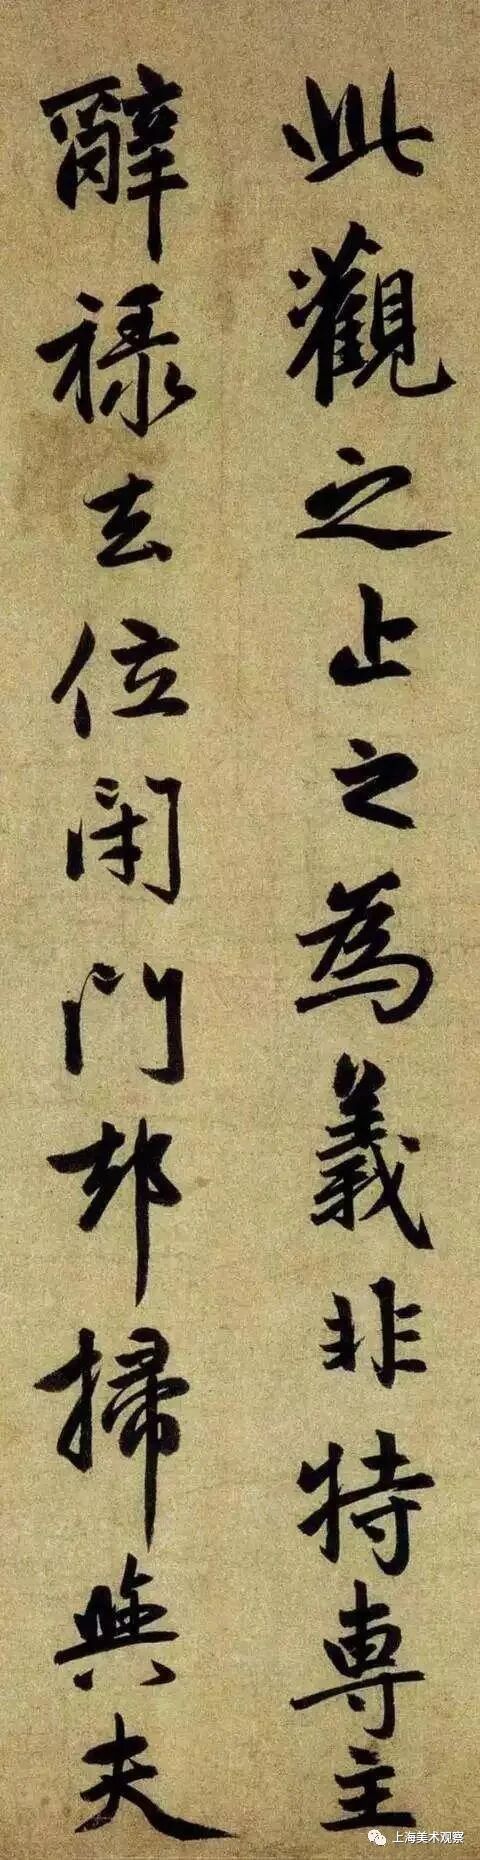 此觀之止之為義非特專主
辭祿去位閉門却掃與夫
上海美术观察